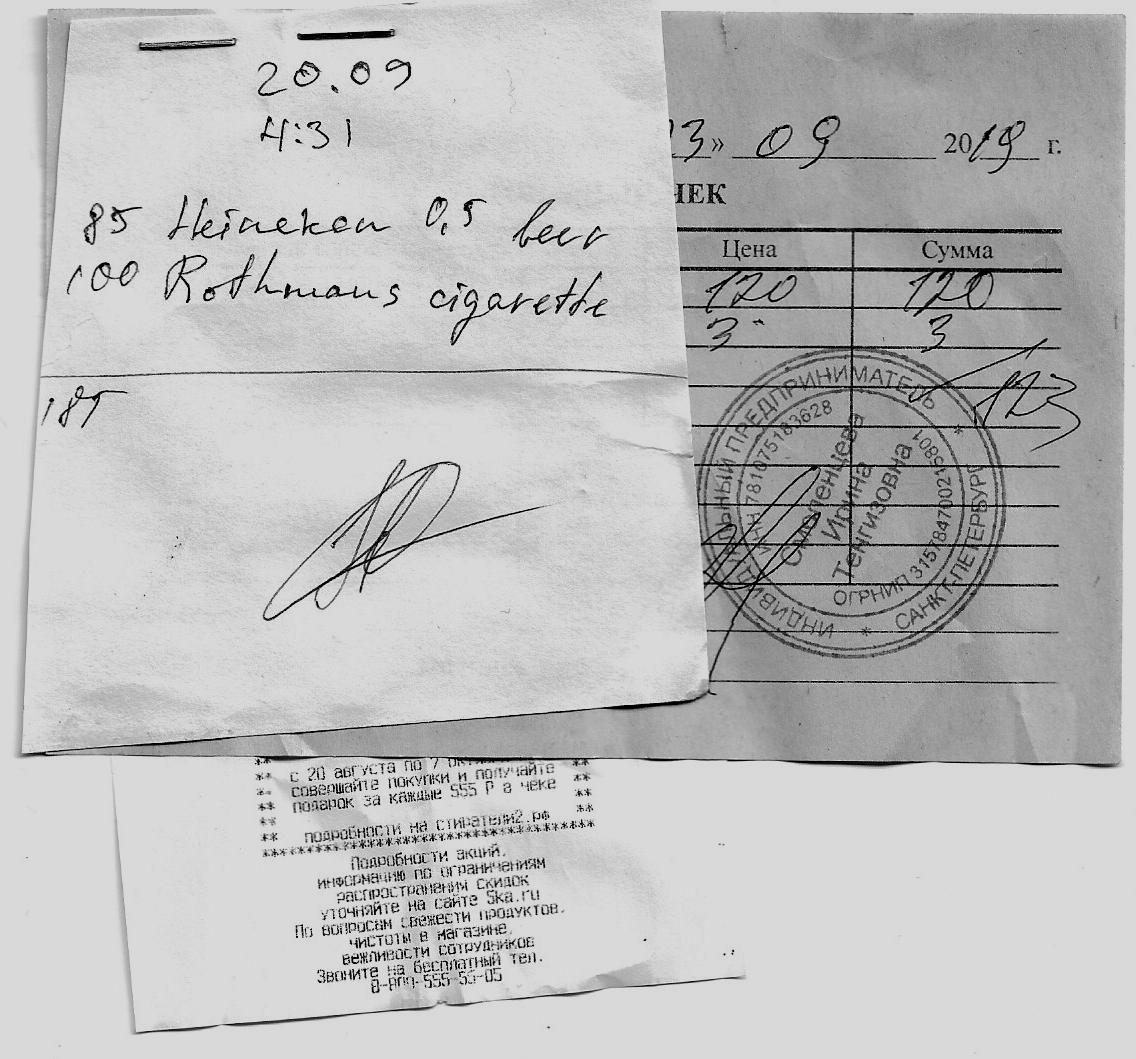 20.09
4:31
85 Heineken 0,5 beer
100 Rothmans cigarette
185
23» 09 2019 г.
ЧЕК
Цена Сумма
120 120
3 3
123
ИНДИВИДУАЛЬНЫЙ ПРЕДПРИНИМАТЕЛЬ
* САНКТ-ПЕТЕРБУРГ *
ИНН 781075183628
Смоленцева
Ирина
Тенгизовна
ОГРНИП 315784700215801
** с 20 августа по 7 **
** совершайте покупки и получайте **
** подарок за каждые 555 Р в чеке **
** **
** подробности на стиратели2.рф **
****************************************
Подробности акций,
информацию по ограничениям
распространения скидок
уточняйте на сайте 5ka.ru
По вопросам свежести продуктов,
чистоты в магазине,
вежливости сотрудников
Звоните на бесплатный тел.
8-800-555-55-05